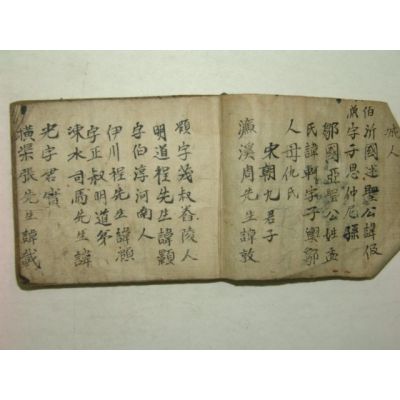 城人
伯沂國述聖公諱伋
廟字子思仲尼孫
鄒國亞聖公姓孟
氏諱軻字子輿鄒
人母仉氏
宋朝九君子
濂溪周先生諱敦
頤字茂叔舂陵人
明道程先生諱顥
字伯淳河南人
伊川程先生諱頤
字正叔明道弟
涑水司馬先生諱
光字君實
橫渠張先生諱載